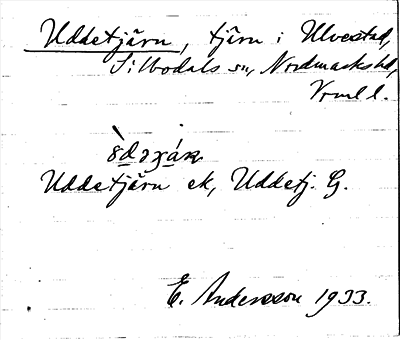 Uddetjärn, tjärn i Ulvestad,
Silbodals sn, Nordmarks hd,
Vrml l.
Uddetjärn ek, Uddetj. G.
E. Andersson 1933.